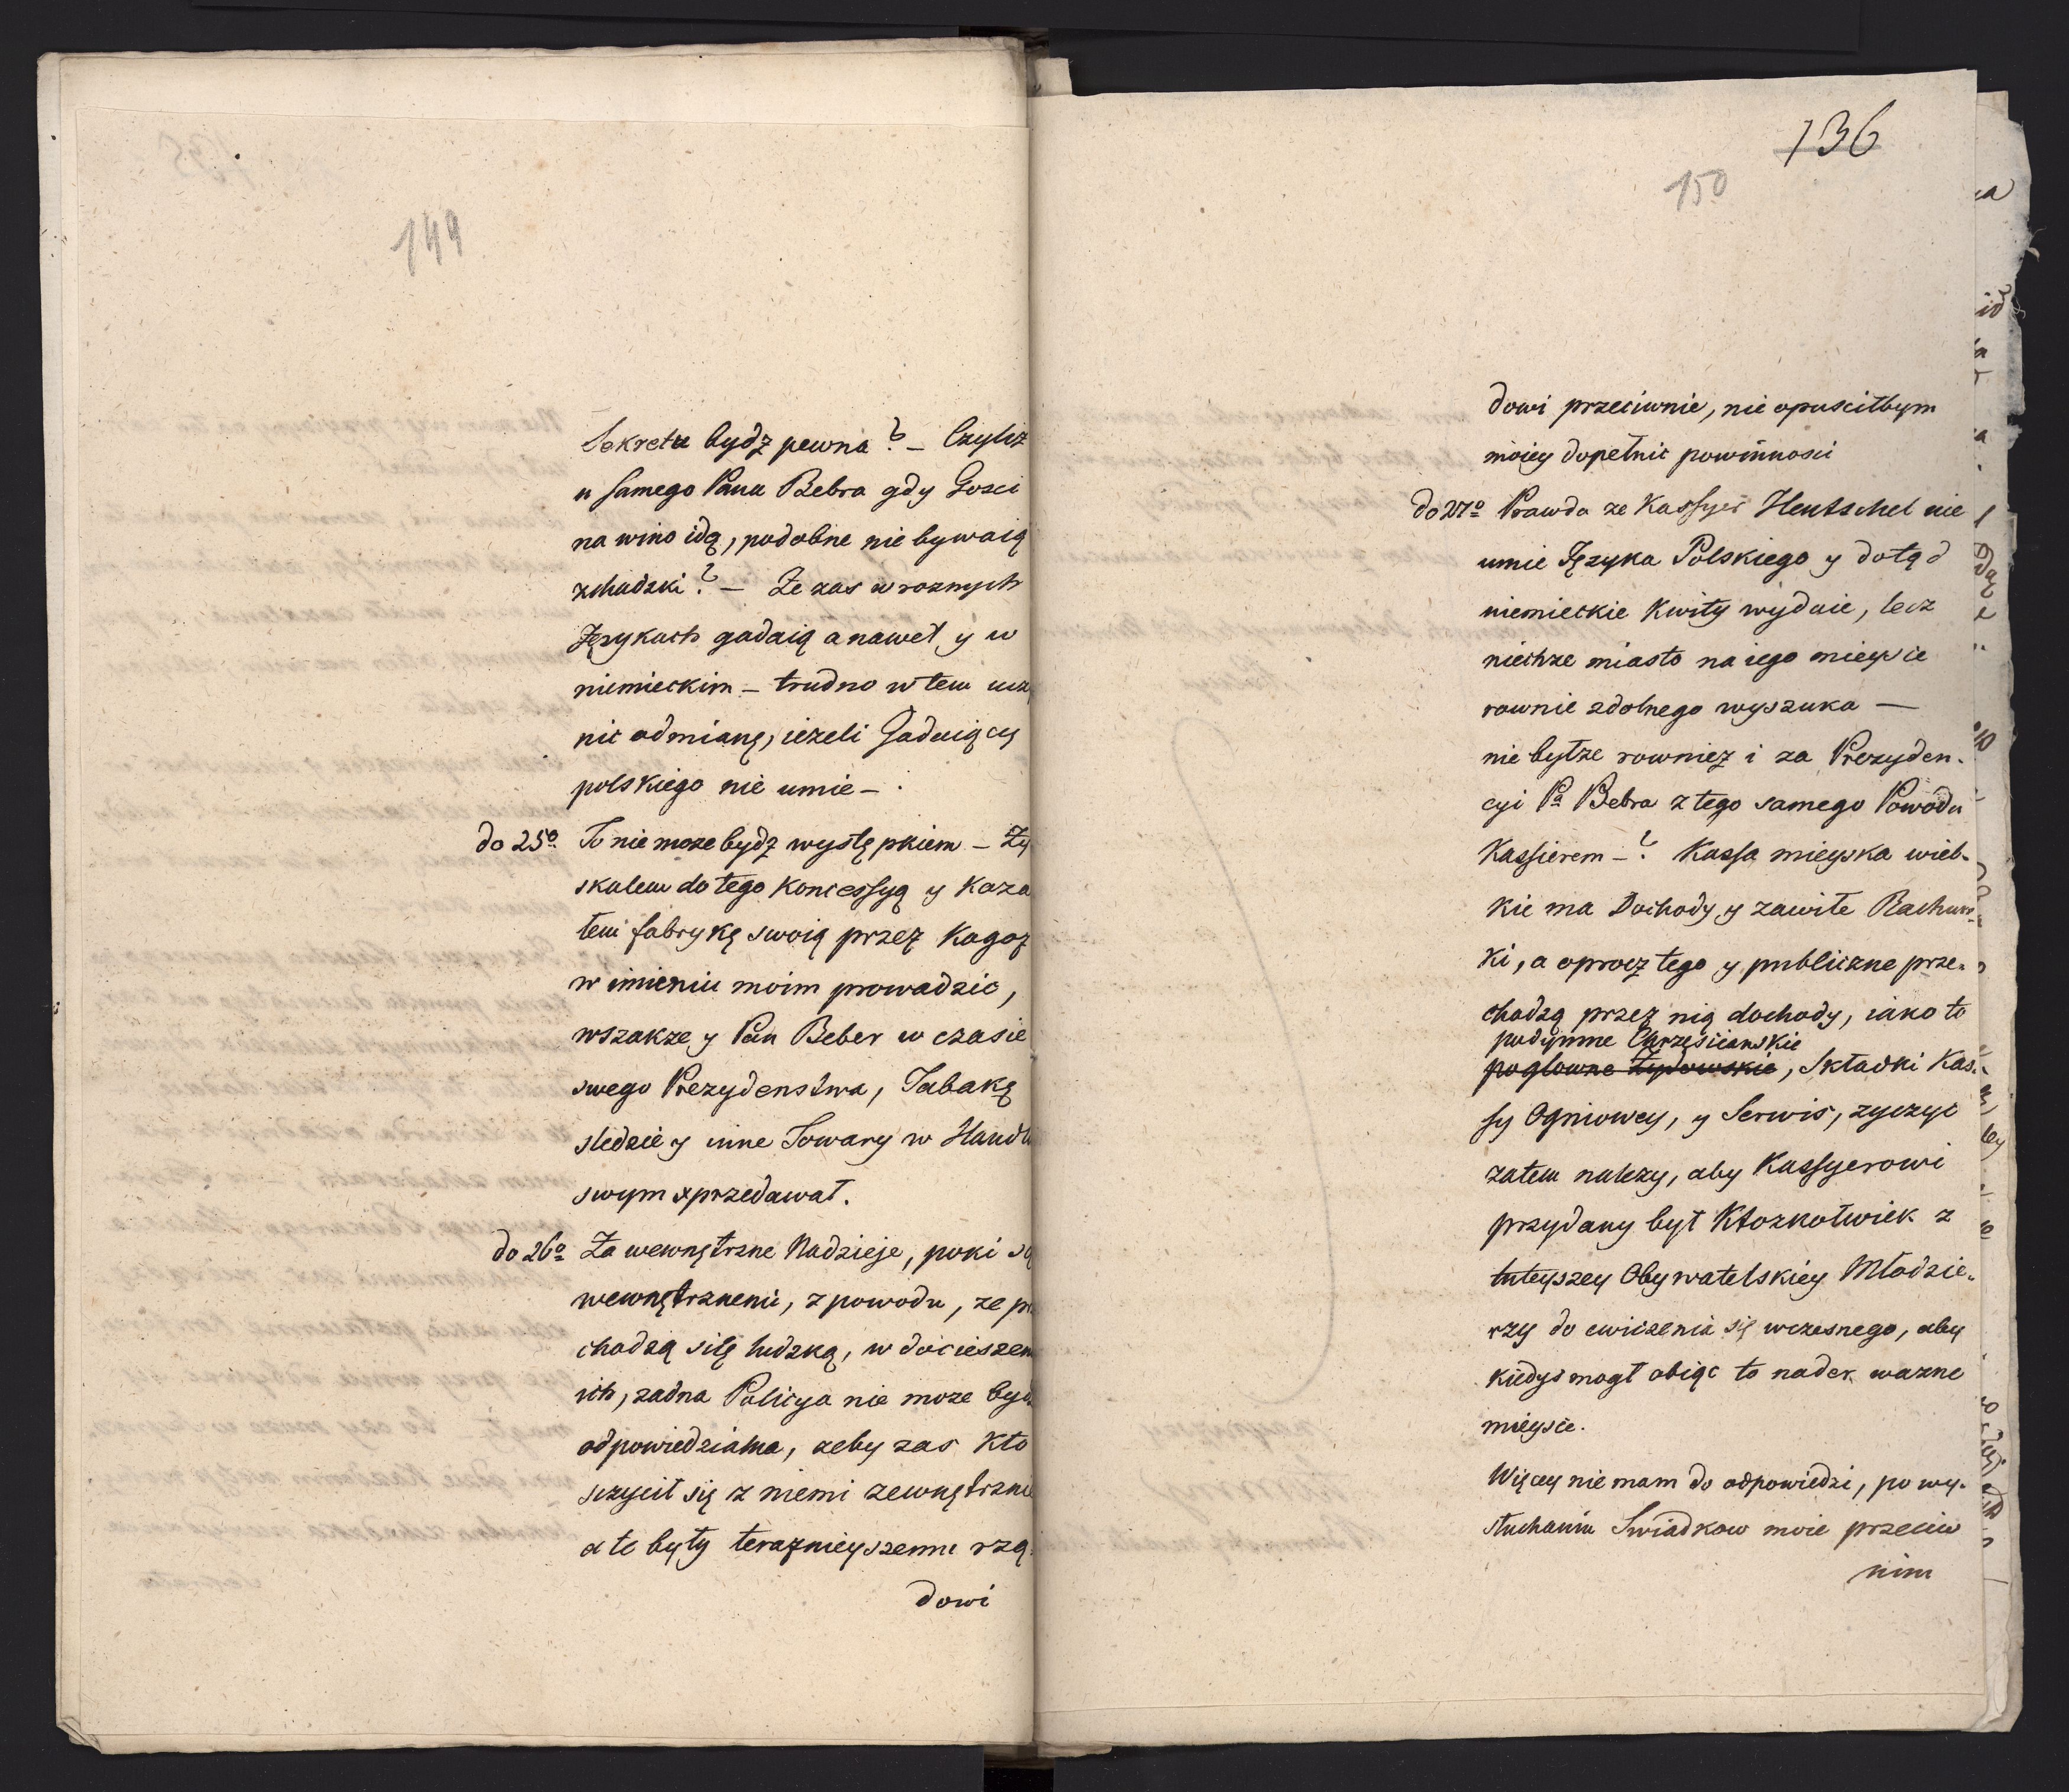 149
Sekretu bydz pewna? – Czyliz
u samego Pana Bebra gdy Gosci
na wino idą, podobne nie bywaią
zchadzki? – Ze zas w roznych
Językach gadaią a nawet y w
niemieckim – trudno w tem uczy
nic odmianę, iezeli Gadaiący
polskiego nie umie – .
do 25o To nie moze bydz występkiem – Zy
skalem do tego Koncessyą y Kaza
lem fabrykę swoią przez Kogoz
w imieniu moim prowadzic,
wszakze y Pan Beber w czasie
swego Prezydenstwa, Tabakę
sledzie y inne Towary w Handlu
swym sprzedawał.
do 26o Za wewnętrzne Nadzieje, poki są
wewnętrznemi, z powodu, ze prze
chodzą siłę ludzką, w docieszeniu
ich, zadna Policya nie moze bydz
odpowiedzialna, zeby zas Kto
szczycił się z niemi zewnętrznie
a te były teraznieyszemu rzą
dowi
136
150
dowi przeciwnie, nie opuscilbym
moiey dopełnic powinnosci
do 27o Prawda ze Kassyer Hentschel nie
umie Języka Polskiego y dotąd
niemieckie Kwity wydaie, lecz
niechze miasto na iego mieysce
rownie zdolnego wyszuka —
nie byłze rowniez i za Prezyden-
cyi Pa Bebra z tego samego Powodu
Kassierem – ? Kassa mieyska wiel-
kie ma Dochody y zawiłe Rachun-
ki, a oprocz tego y publiczne prze-
chodzą przez nią dochody, iako to
podymne Chrzescianskie
poglowne Zydowskie, Składki Kas-
sy Ogniowey, y Serwis, zyczyc
zatem nalezy, aby Kassyerowi
przydany był Ktozkolwiek z
tuteyszey Obywatelskiey Młodzie-
rzy do cwiczenia się wczesnego, aby
kiedys mogł obiąc to nader wazne
mieysce.
Więcey nie mam do odpowiedzi, po wy-
słuchaniu Swiadkow moie przeciw
nim